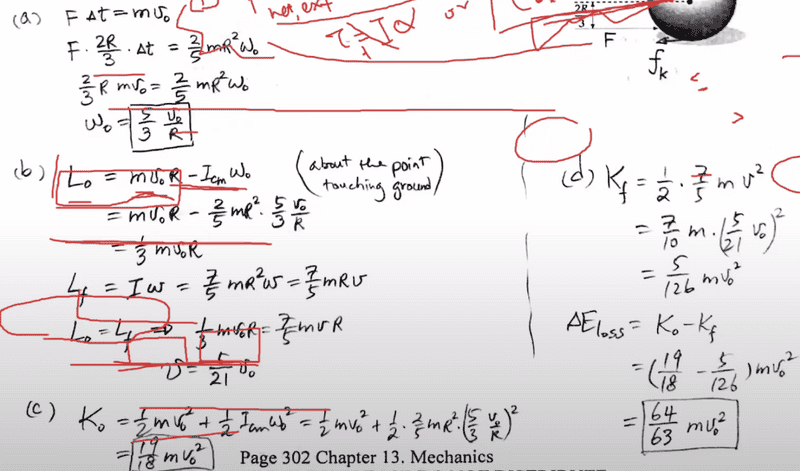 (a) F Δt = mv₀
F · 2R/3 · Δt = 2/5 mR²ω₀
2/3 R mv₀ = 2/5 mR²ω₀
ω₀ = 5/3 v₀/R
net, ext
τ = Iα or
2R
3
F
fₖ
(b) L₀ = mv₀R - I_cm ω₀ (about the point touching ground)
= mv₀R - 2/5 mR² · 5/3 v₀/R
= 1/3 mv₀R
L_f = Iω = 7/5 mR²ω = 7/5 mRv
L₀ = L_f ⇒ 1/3 mv₀R = 7/5 mvR
v = 5/21 v₀
(c) K₀ = 1/2 mv₀² + 1/2 I_cm ω₀² = 1/2 mv₀² + 1/2 · 2/5 mR² · (5/3 v₀/R)²
= 19/18 mv₀²
(d) K_f = 1/2 · 7/5 m v²
= 7/10 m · (5/21 v₀)²
= 5/126 mv₀²
ΔE_loss = K₀ - K_f
= (19/18 - 5/126) mv₀²
= 64/63 mv₀²
Page 302 Chapter 13. Mechanics